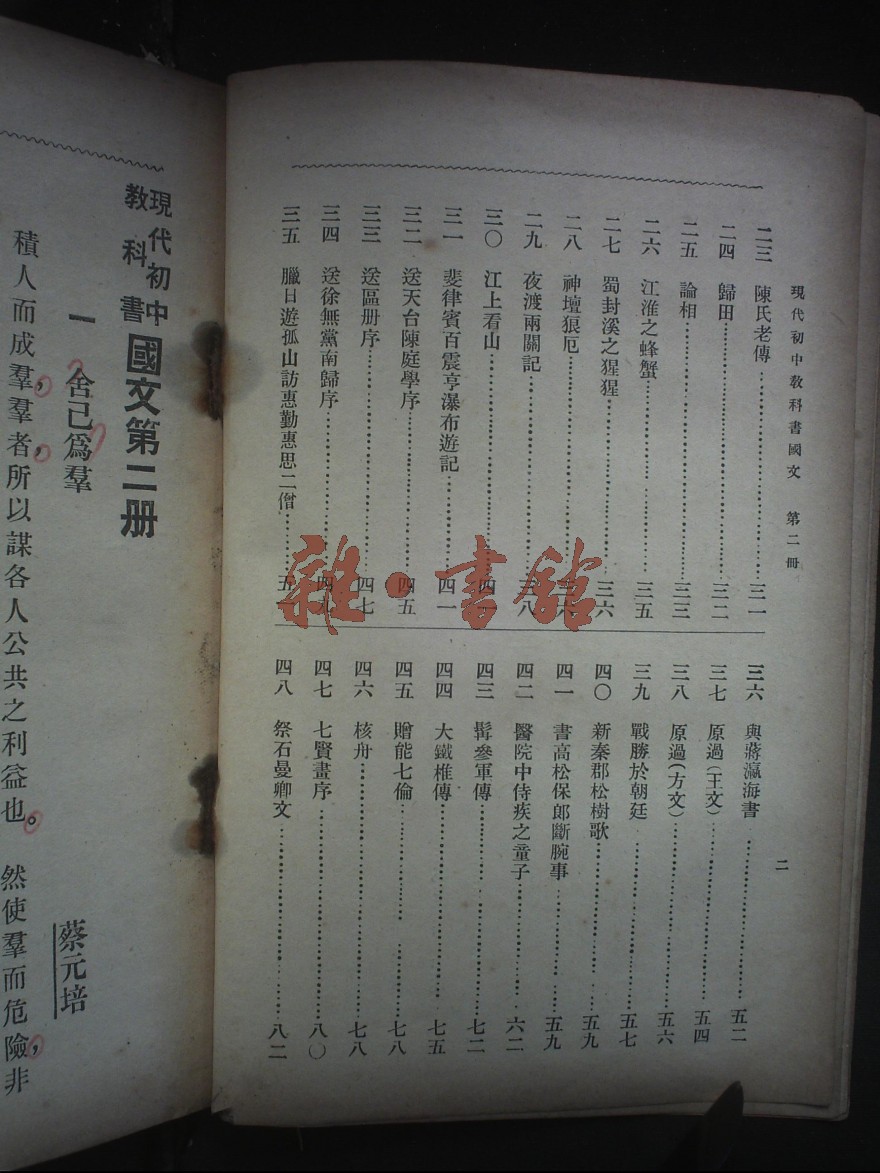 現代初中教科書國文　第二冊
二
二三　陳氏老傳……三一
二四　歸田……三二
二五　論相……三三
二六　江淮之蜂蟹……三五
二七　蜀封溪之猩猩……三六
二八　神壇狼厄……三六
二九　夜渡兩關記……三八
三〇　江上看山……四一
三一　斐律賓百震亨瀑布遊記……四一
三二　送天台陳庭學序……四五
三三　送區册序……四七
三四　送徐無黨南歸序……四九
三五　臘日遊孤山訪惠勤惠思二僧……五
三六　與蔣瀛海書……五二
三七　原過（王文）……五四
三八　原過（方文）……五六
三九　戰勝於朝廷……五七
四〇　新秦郡松樹歌……五九
四一　書高松保郎斷腕事……五九
四二　醫院中侍疾之童子……六二
四三　髯參軍傳……七二
四四　大鐵椎傳……七五
四五　贈能七倫……七八
四六　核舟……七八
四七　七賢畫序……八〇
四八　祭石曼卿文……八二
雜·書館
現代初中教科書國文第二册
一　舍己爲羣
蔡元培
積人而成羣，羣者，所以謀各人公共之利益也。然使羣而危險，非